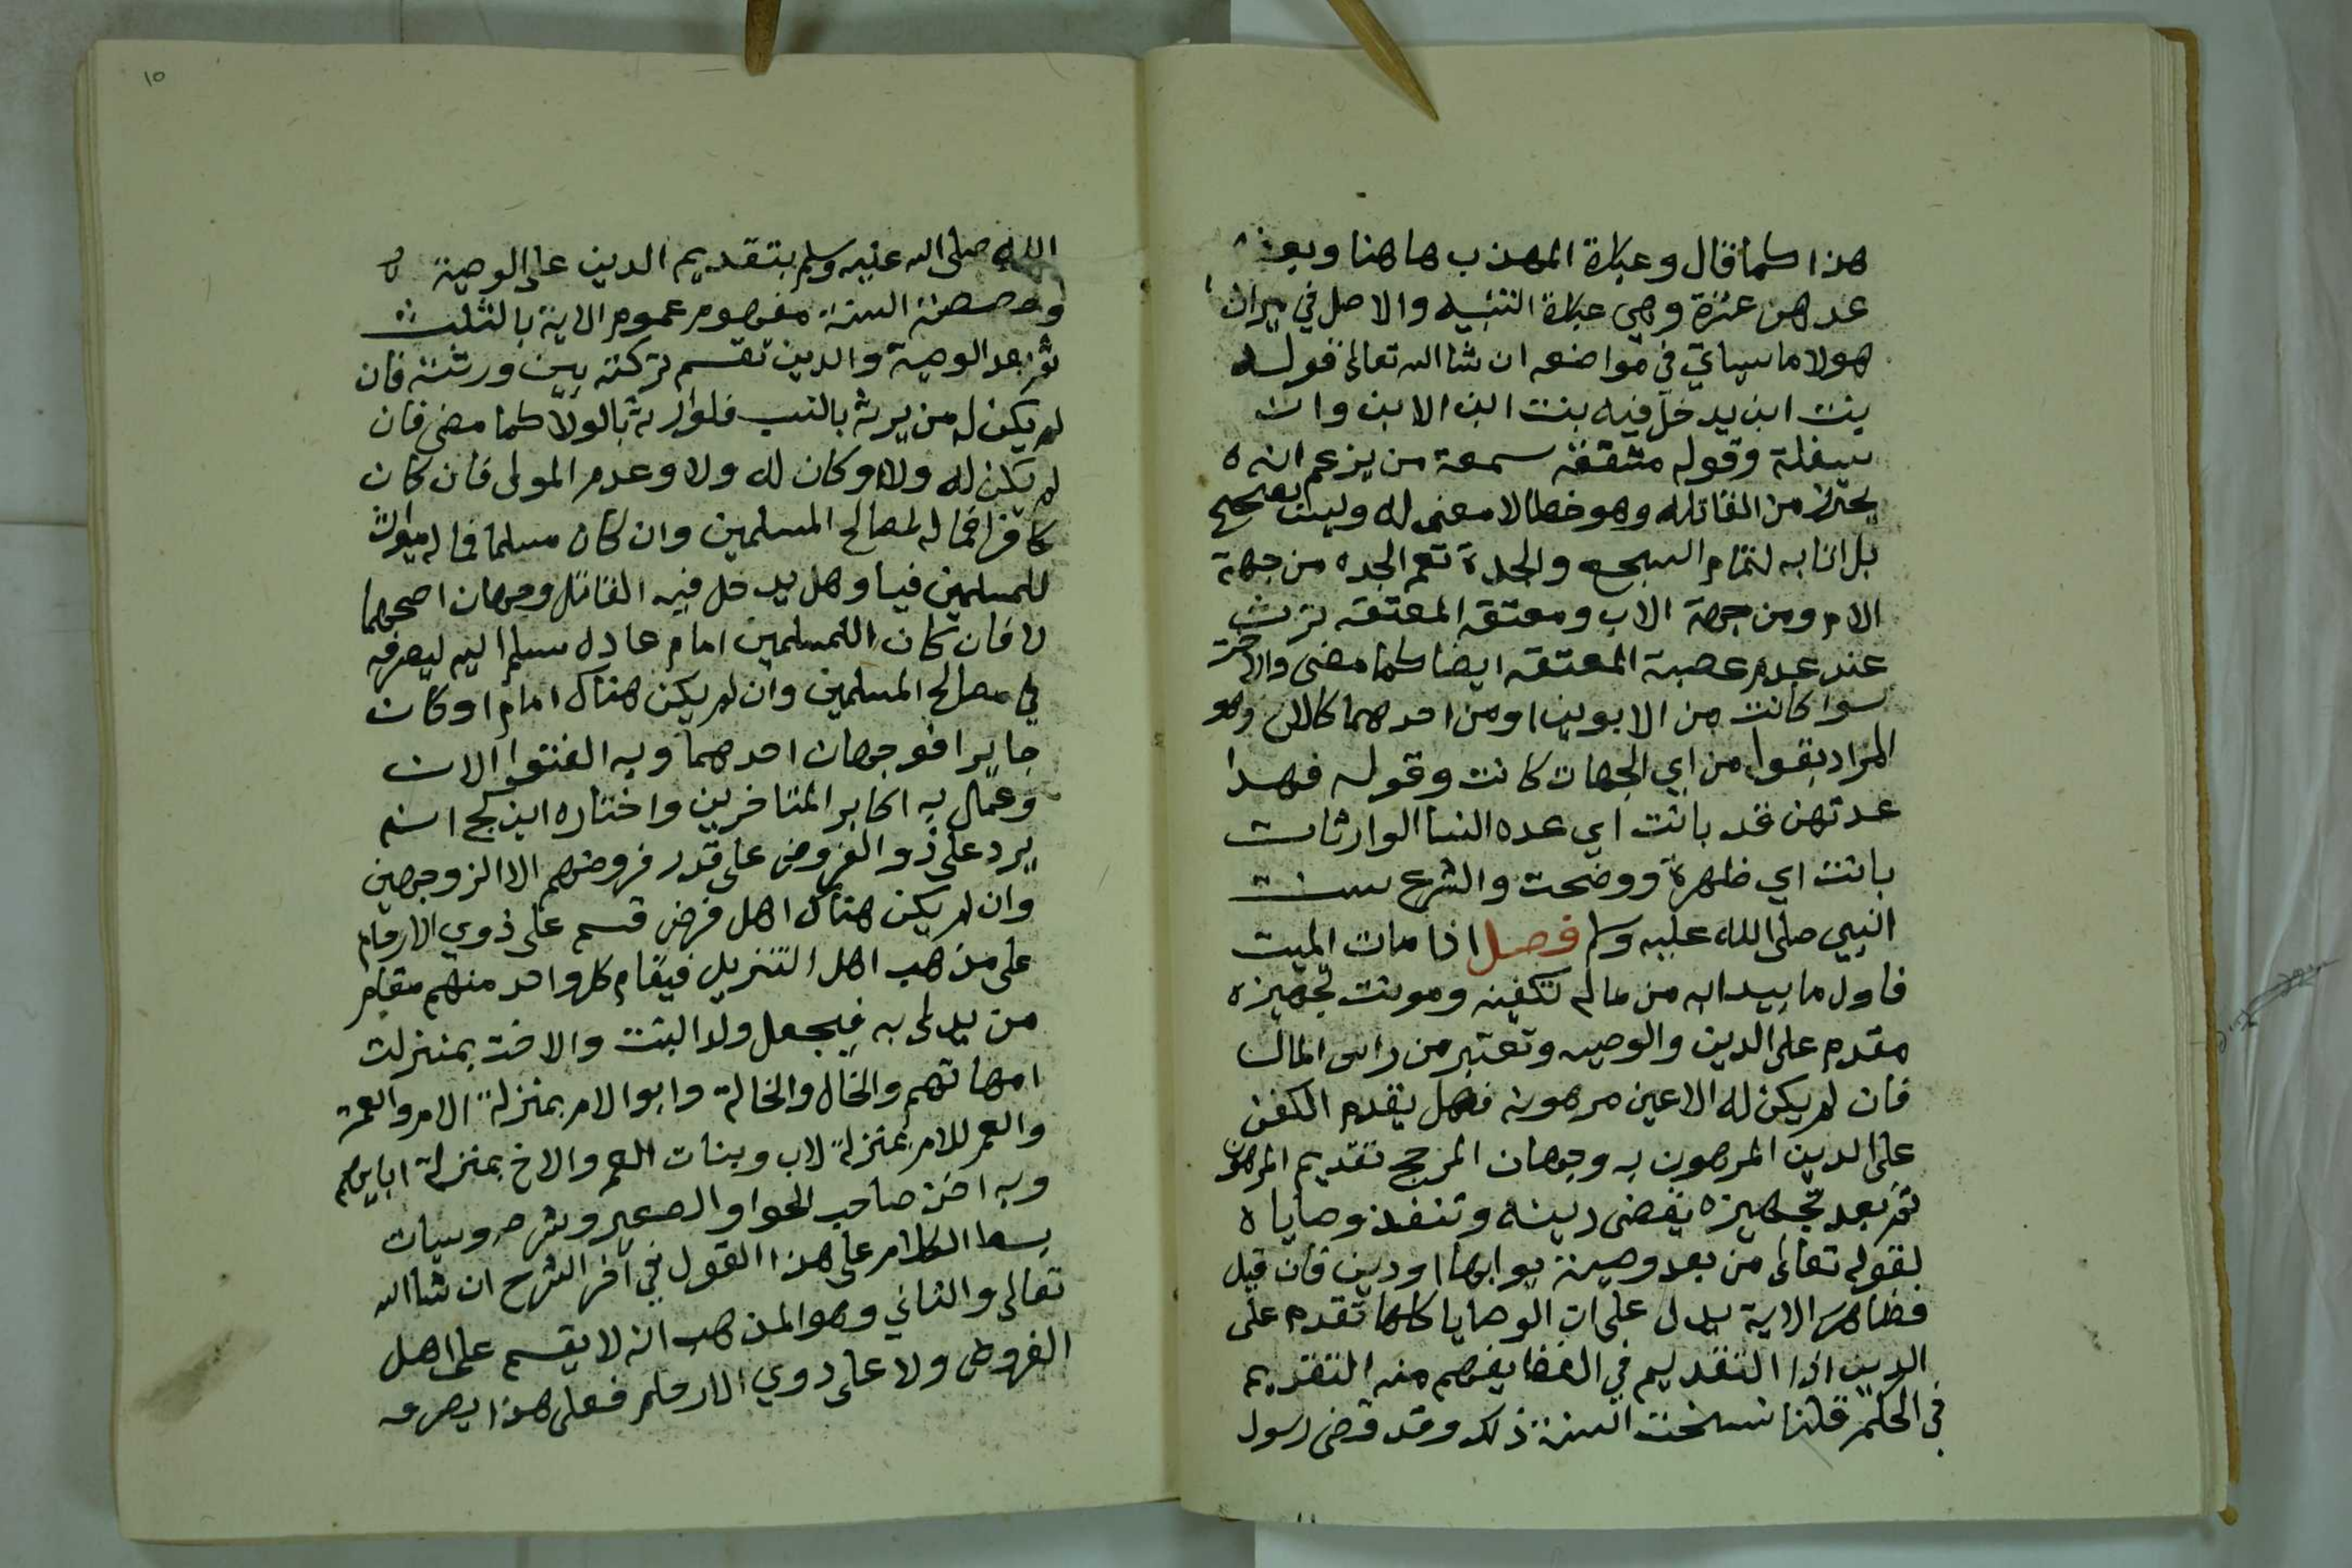 هذا كما قال وعبارة المهذب هاهنا وبعضهم
عدهن عشرة وهي عبارة التنبيه والاصل في ميراث
هولا ما سياتي في مواضعه ان شا الله تعالى قوله
بنت ابن يدخل فيه بنت ابن الابن وان
سفلة وقوله مشفقة سمعة من يزعم انه ه
يحترز من القاتله وهو خطا لا معنى له وليس بصحيح
بل اتا به لتمام السجع والجدة تعم الجده من جهة
الام ومن جهة الاب ومعتقه المعتقه ترث
عند عدم عصبة المعتقه ايضا كما مضى والاخت
سوا كانت من الابوين او من احدهما كالابن وهو
المراد بقوله من اي الجهات كانت وقوله فهذا
عدتهن قد بانت اي عده النسا الوارثات
بانت اي ظهرة ووضحت والشرع سنت
النبي صلى الله عليه وسلم فصل اذا مات الميت
فاول ما يبدا به من ماله تكفينه ومونت تجهيزه
مقدم على الدين والوصيه وتعتبر من راس المال
فان لم يكن له الا عين مرهونه فهل يقدم الكفن
على الدين المرهون به وجهان المرجح تقديم المرهون
ثم بعد تجهيزه يقضى دينه وتنفذ وصاياه
لقوله تعالى من بعد وصية يوصي بها او دين فان قيل
فظاهر الاية يدل على ان الوصايا كلها تقدم على
الدين اذا التقديم في اللفظ يفهم منه التقديم
في الحكم قلنا نسخت السنة ذلك وقد قضى رسول
١٥
الله صلى الله عليه وسلم بتقديم الدين على الوصية
وخصصة السنة مفهوم عموم الاية بالثلث
ثم بعد الوصية والدين تقسم تركته بين ورثته فان
لم يكن له من يرث بالنسب فلوارثه بالولا كما مضى فان
لم يكن له ولا او كان له ولا وعدم المولى فان كان
كافرا فماله لمصالح المسلمين وان كان مسلما فماله ميراث
للمسلمين فيا وهل يدخل فيه القاتل وجهان اصحهما
لا فان كان للمسلمين امام عادل سلم اليه ليصرفه
في مصالح المسلمين وان لم يكن هناك امام او كان
جايرا فوجهان احدهما وبه الفتوا الان
وعمل به اكابر المتاخرين واختاره ابن كج انه
يرد على ذو الفروض على قدر فروضهم الا الزوجين
وان لم يكن هناك اهل فرض قسم على ذوي الارحام
على مذهب اهل التنزيل فيقام كل واحد منهم مقام
من يدلى به فيجعل ولد البنت والاخت بمنزلت
امهاتهم والخال والخالة وابو الام بمنزلة الام والعمة
والعم للام بمنزلة لاب وبنات العم والاخ بمنزلة ابايهم
وبه اخذ صاحب الحوا والصغير وشرحه وسيات
بسط الكلام على هذا القول في آخر الشرح ان شا الله
تعالى والثاني وهو المذهب انه لا يقسم على اهل
الفروض ولا على ذوي الارحام فعلى هذا يصرف